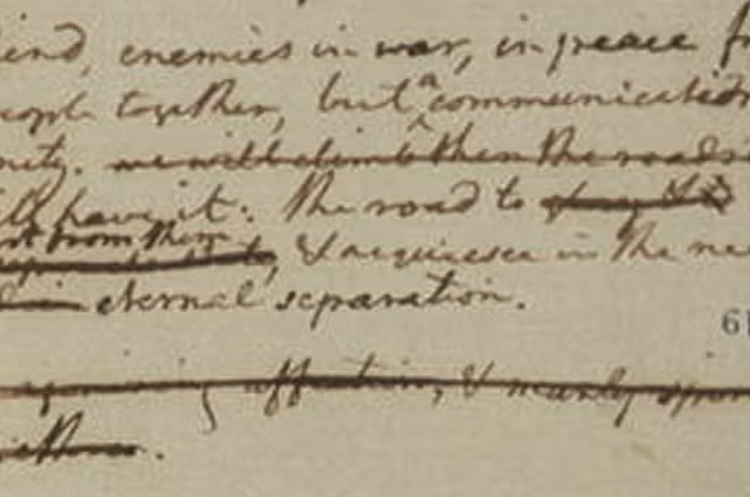 ind, enemies in war, in peace f
eople together, but a communication
nity. we will climb then the roads
ill have it: the road to
rt from them
, & acquiesce in the ne
eternal separation.
61
affection, & manly